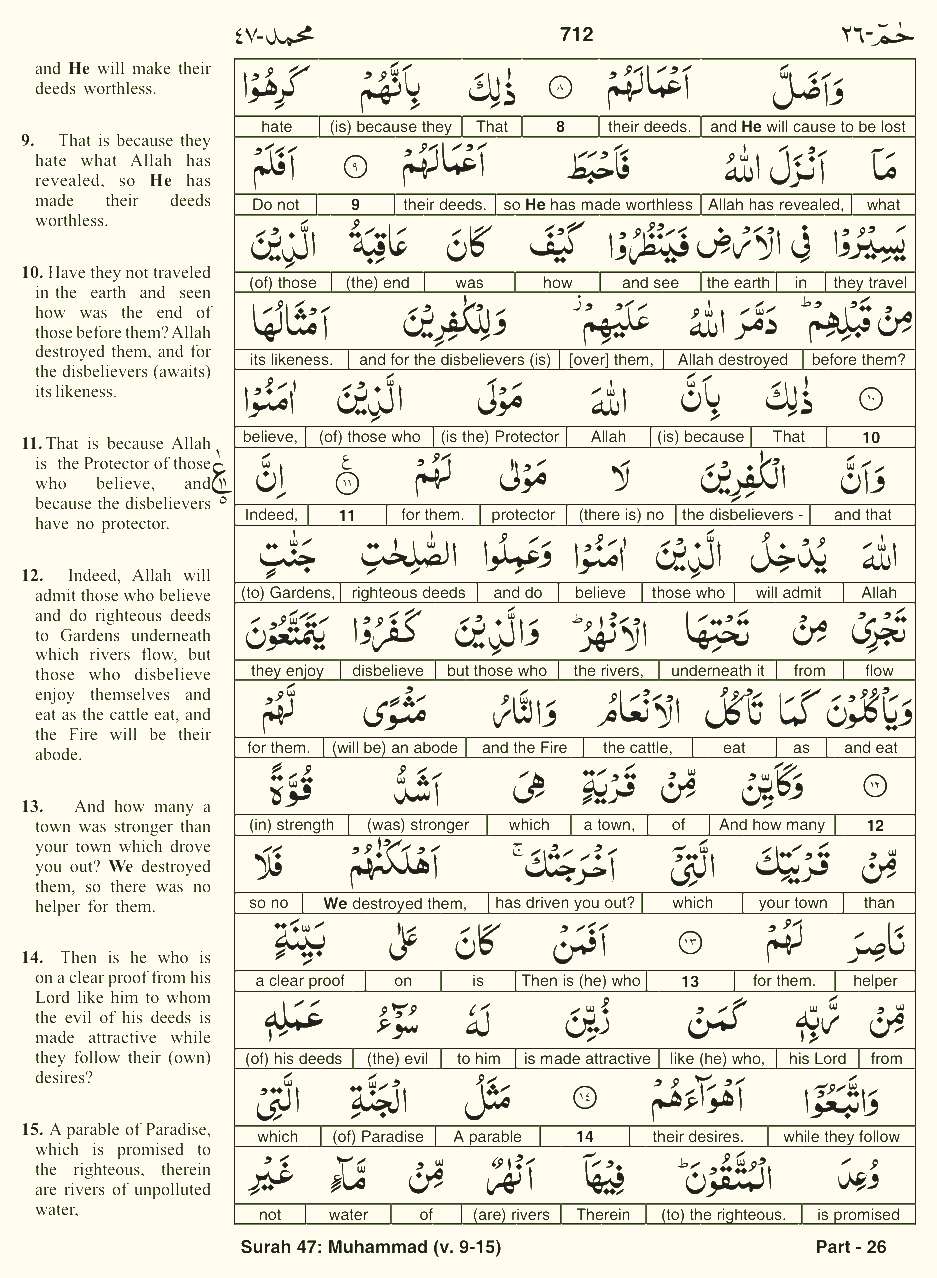 محمد-٤٧ 712 حٰمٓ-٢٦
and He will make their
deeds worthless.
9. That is because they
hate what Allah has
revealed, so He has
made their deeds
worthless.
10. Have they not traveled
in the earth and seen
how was the end of
those before them? Allah
destroyed them, and for
the disbelievers (awaits)
its likeness.
11. That is because Allah
is the Protector of those
who believe, and
because the disbelievers
have no protector.
12. Indeed, Allah will
admit those who believe
and do righteous deeds
to Gardens underneath
which rivers flow, but
those who disbelieve
enjoy themselves and
eat as the cattle eat, and
the Fire will be their
abode.
13. And how many a
town was stronger than
your town which drove
you out? We destroyed
them, so there was no
helper for them.
14. Then is he who is
on a clear proof from his
Lord like him to whom
the evil of his deeds is
made attractive while
they follow their (own)
desires?
15. A parable of Paradise,
which is promised to
the righteous, therein
are rivers of unpolluted
water,
وَاَضَلَّ اَعْمَالَهُمْ ٨ ذٰلِكَ بِاَنَّهُمْ كَرِهُوْا
hate (is) because they That 8 their deeds. and He will cause to be lost
مَاۤ اَنْزَلَ اللّٰهُ فَاَحْبَطَ اَعْمَالَهُمْ ٩ اَفَلَمْ
Do not 9 their deeds. so He has made worthless Allah has revealed, what
يَسِيْرُوْا فِى الْاَرْضِ فَيَنْظُرُوْا كَيْفَ كَانَ عَاقِبَةُ الَّذِيْنَ
(of) those (the) end was how and see the earth in they travel
مِنْ قَبْلِهِمْ ؕ دَمَّرَ اللّٰهُ عَلَيْهِمْ ؗ وَلِلْكٰفِرِيْنَ اَمْثَالُهَا
its likeness. and for the disbelievers (is) [over] them, Allah destroyed before them?
١٠ ذٰلِكَ بِاَنَّ اللّٰهَ مَوْلَى الَّذِيْنَ اٰمَنُوْا
believe, (of) those who (is the) Protector Allah (is) because That 10
وَاَنَّ الْكٰفِرِيْنَ لَا مَوْلٰى لَهُمْ ١١ ع اِنَّ
Indeed, 11 for them. protector (there is) no the disbelievers - and that
اللّٰهَ يُدْخِلُ الَّذِيْنَ اٰمَنُوْا وَعَمِلُوا الصّٰلِحٰتِ جَنّٰتٍ
(to) Gardens, righteous deeds and do believe those who will admit Allah
تَجْرِىْ مِنْ تَحْتِهَا الْاَنْهٰرُ ؕ وَالَّذِيْنَ كَفَرُوْا يَتَمَتَّعُوْنَ
they enjoy disbelieve but those who the rivers, underneath it from flow
وَيَاْكُلُوْنَ كَمَا تَاْكُلُ الْاَنْعَامُ وَالنَّارُ مَثْوًى لَّهُمْ
for them. (will be) an abode and the Fire the cattle, eat as and eat
١٢ وَكَاَيِّنْ مِّنْ قَرْيَةٍ هِىَ اَشَدُّ قُوَّةً
(in) strength (was) stronger which a town, of And how many 12
مِّنْ قَرْيَتِكَ الَّتِىْۤ اَخْرَجَتْكَ ۚ اَهْلَكْنٰهُمْ فَلَا
so no We destroyed them, has driven you out? which your town than
نَاصِرَ لَهُمْ ١٣ اَفَمَنْ كَانَ عَلٰى بَيِّنَةٍ
a clear proof on is Then is (he) who 13 for them. helper
مِّنْ رَّبِّهٖ كَمَنْ زُيِّنَ لَهٗ سُوْٓءُ عَمَلِهٖ
(of) his deeds (the) evil to him is made attractive like (he) who, his Lord from
وَاتَّبَعُوْۤا اَهْوَآءَهُمْ ١٤ مَثَلُ الْجَنَّةِ الَّتِىْ
which (of) Paradise A parable 14 their desires. while they follow
وُعِدَ الْمُتَّقُوْنَ ؕ فِيْهَاۤ اَنْهٰرٌ مِّنْ مَّآءٍ غَيْرِ
not water of (are) rivers Therein (to) the righteous. is promised
Surah 47: Muhammad (v. 9-15) Part - 26